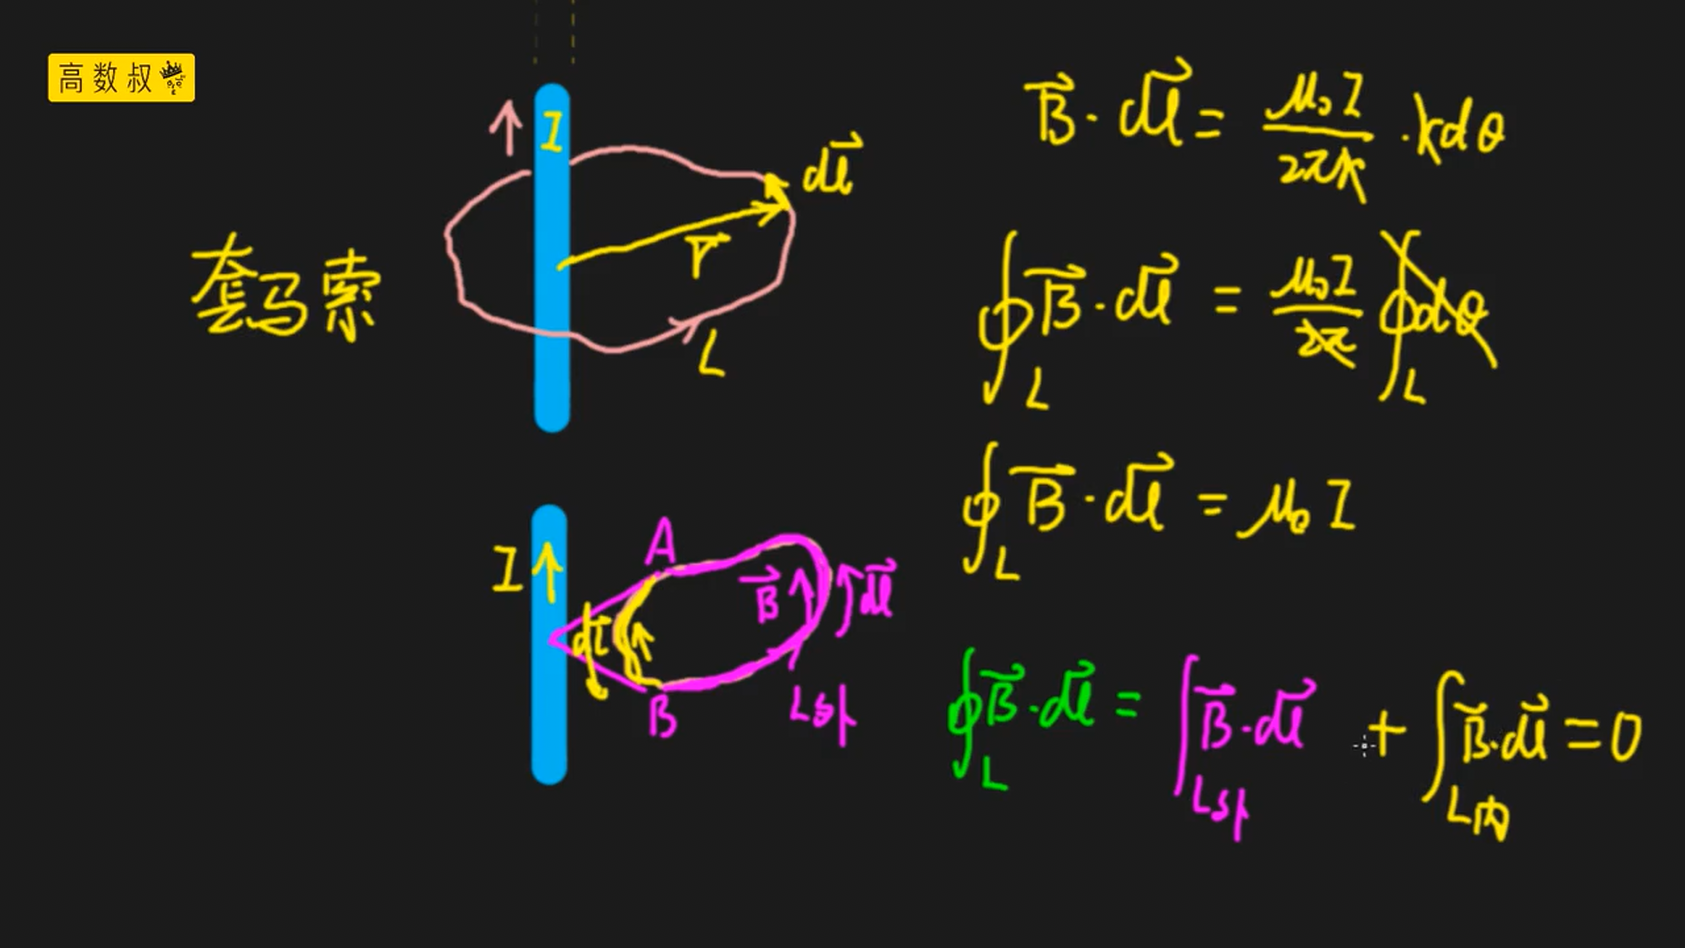 高数叔
I
dl⃗
r⃗
L
套马索
B⃗ · dl⃗ = μ₀I / 2πr · rdθ
∮_L B⃗ · dl⃗ = μ₀I / 2π ∮_L dθ
∮_L B⃗ · dl⃗ = μ₀ I
I
A
B⃗
dl⃗
dl⃗
B
L外
∮_L B⃗ · dl⃗ = ∫_L外 B⃗ · dl⃗ + ∫_L内 B⃗ · dl⃗ = 0